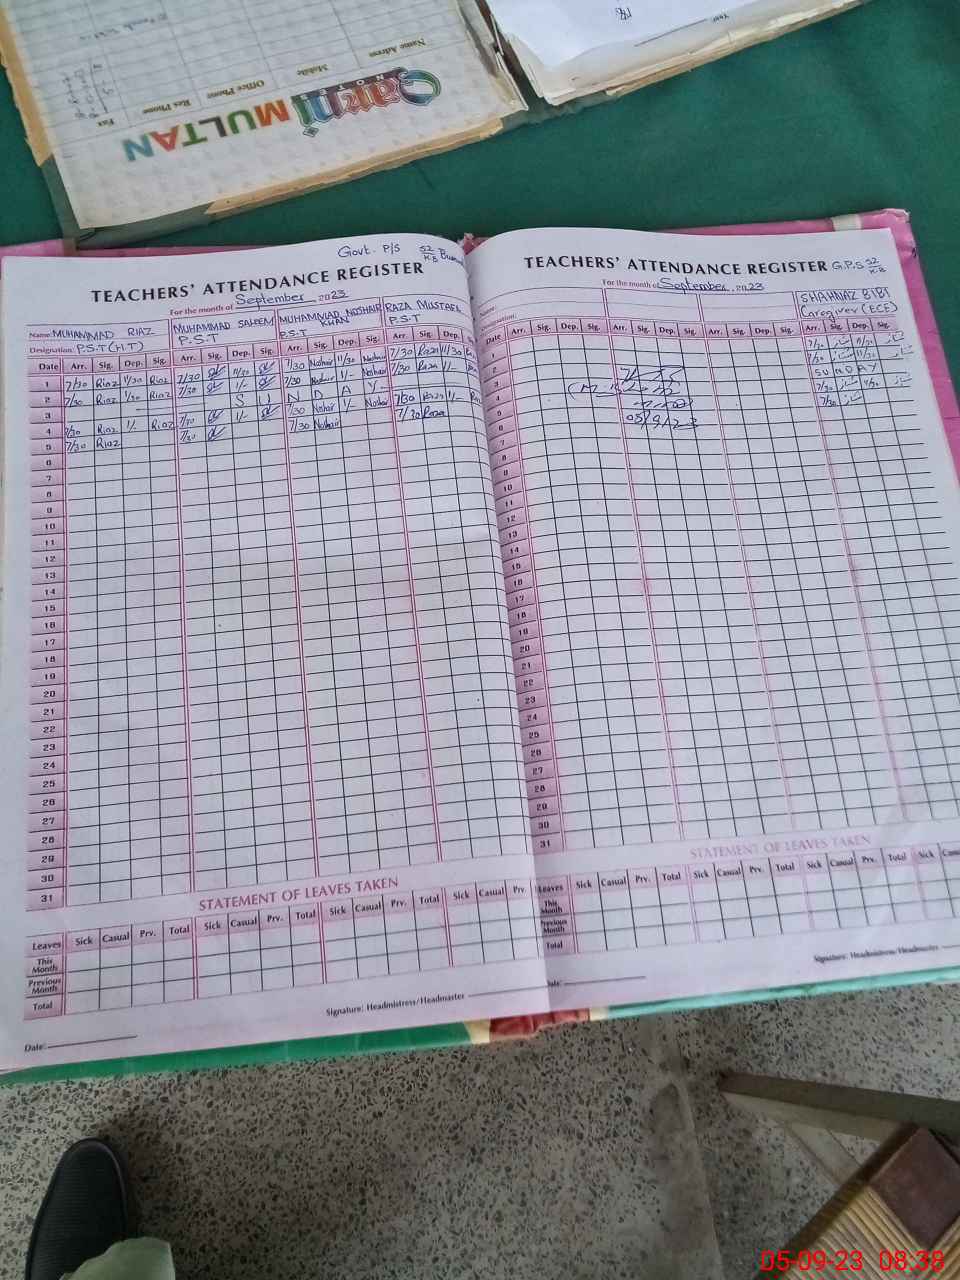 Qarni
NOTES
MULTAN
Name Adress
Mobile
Office Phone
Res Phone
Fax
Govt. P/S 52/K.B
TEACHERS' ATTENDANCE REGISTER
For the month of September 2023
Name: MUHAMMAD RIAZ MUHAMMAD SALEEM MUHAMMAD NOSHAIR KHAN RAZA MUSTAFA
Designation: P.S.T (H.T) P.S.T P.S.T P.S.T
Date Arr. Sig. Dep. Sig. Arr. Sig. Dep. Sig. Arr. Sig. Dep. Sig. Arr. Sig. Dep.
1 7/30 Riaz 11/30 Riaz 7/30 11/30 7/30 Noshair 11/30 Noshair 7/30 Raza 11/30
2 7/30 Riaz 11/30 Riaz 7/30 1/- 7/30 Noshair 1/- Noshair 7/30 Raza 1/-
3 S U N D A Y
4 7/30 Riaz 1/- Riaz 7/30 1/- 7/30 Noshair 1/- Noshair 7/30 Raza 1/-
5 7/30 Riaz 7/30 7/30 Noshair 7/30 Raza
6
7
8
9
10
11
12
13
14
15
16
17
18
19
20
21
22
23
24
25
26
27
28
29
30
31
STATEMENT OF LEAVES TAKEN
Leaves Sick Casual Prv. Total Sick Casual Prv. Total Sick Casual Prv. Total Sick Casual Prv.
This Month
Previous Month
Total
Signature: Headmistress/Headmaster
Date:
TEACHERS' ATTENDANCE REGISTER G.P.S 52/K.B
For the month of September, 2023
Name: SHAHNAZ BIBI
Designation: Caregiver (ECE)
Date Arr. Sig. Dep. Sig. Arr. Sig. Dep. Sig. Arr. Sig. Dep. Sig. Arr. Sig. Dep. Sig.
1 7/30 شہناز 11/30 شہناز
2 7/30 شہناز 11/30 شہناز
3 SUNDAY
4 7/30 شہناز شہناز
5 7/30 شہناز
05/9/23
6
7
8
9
10
11
12
13
14
15
16
17
18
19
20
21
22
23
24
25
26
27
28
29
30
31
STATEMENT OF LEAVES TAKEN
Leaves Sick Casual Prv. Total Sick Casual Prv. Total Sick Casual
This Month
Previous Month
Total
Signature: Headmistress/Headmaster
Date:
05-09-23 08:38